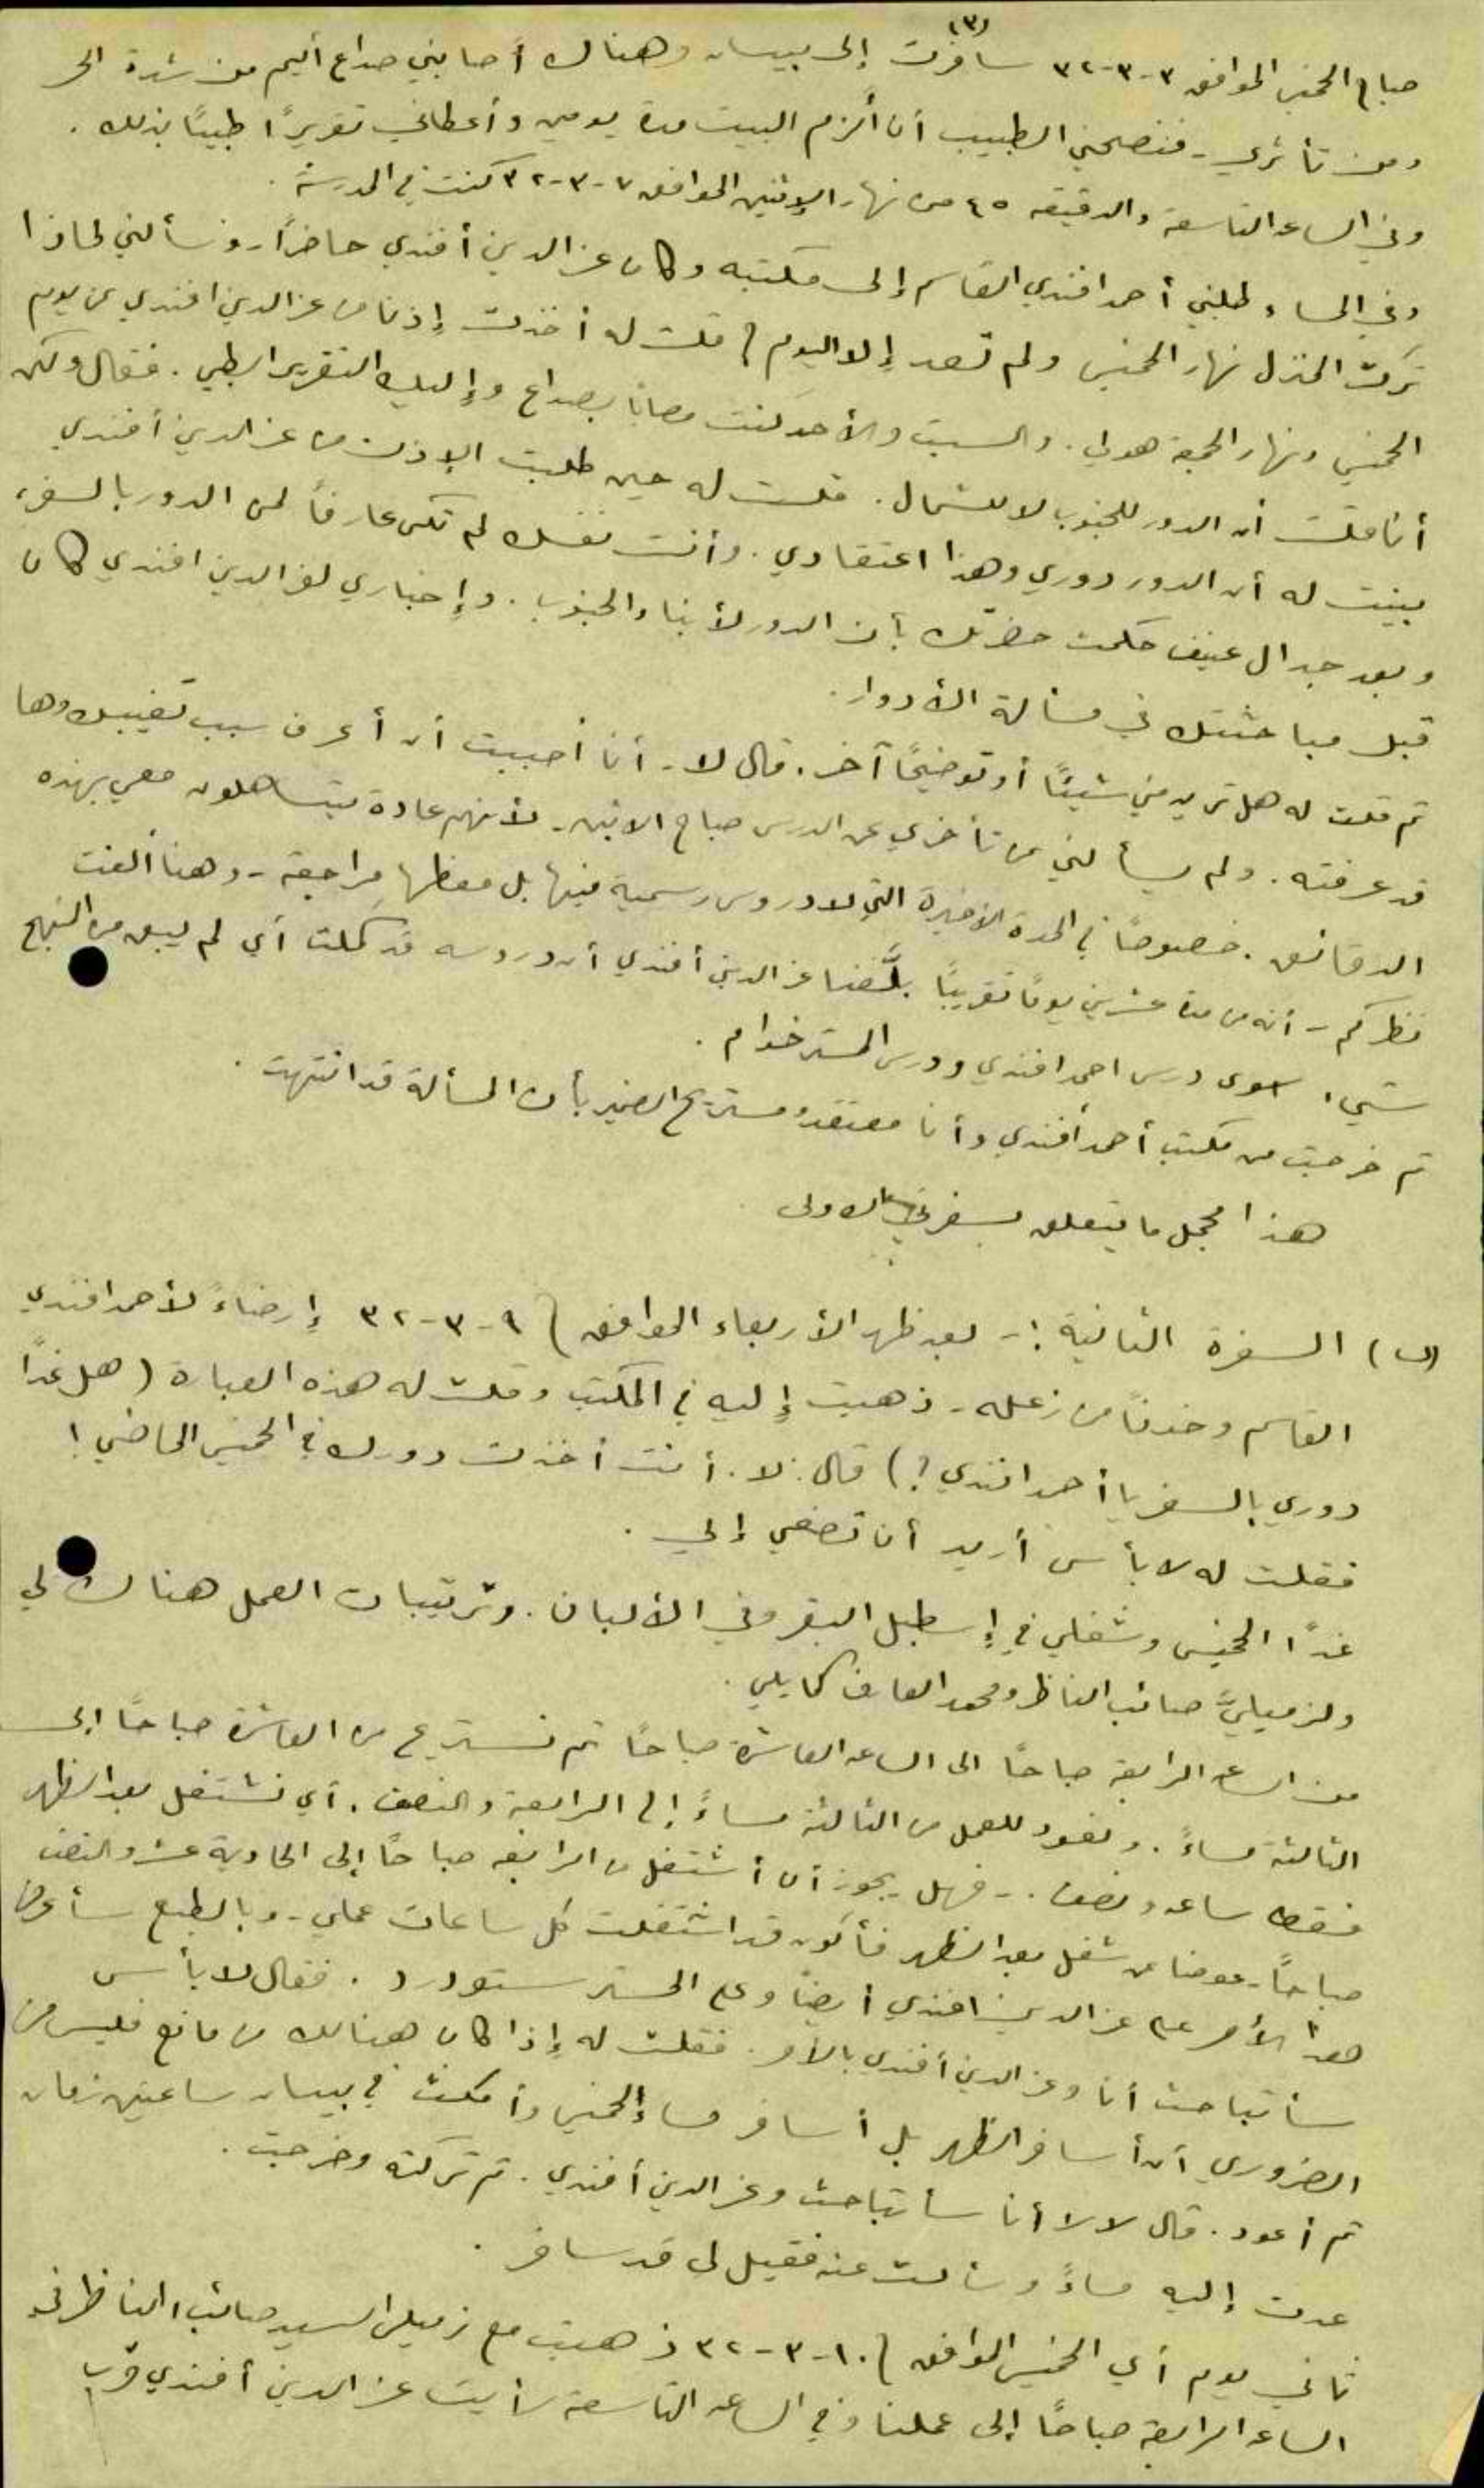 (٣)
صباح الخميس الموافق ٣-٣-٣٢ سافرت إلى بيسان وهناك أصابني صداع أليم من شدة الحر
ومن تأثري - فنصحني الطبيب أن ألزم البيت مدة يومين وأعطاني تقريرًا طبيًا بذلك.
وفي الساعه التاسعة والدقيقه ٤٥ من نهار الإثنين الموافق ٧-٣-٣٢ كنت في المدرسة.
وفي المساء طلبني أحمد افندي القاسم إلى مكتبه وكان عز الدين أفندي حاضرًا - وسألني لماذا
تركت المنزل نهار الخميس ولم تعد إلا اليوم ؟ قلت له أخذت إذنا من عز الدين افندي عن يوم
الخميس ونهار الجمعة هو لي. والسبت والأحد كنت مصابًا بصداع وإليك التقرير الطبي. فقال ولكن
أنا قلت أن الدور للجنوب لا للشمال. قلت له حين طلبت الإذن من عز الدين أفندي
بينت له أن الدور دوري وهذا اعتقادي. وأنت نفسك لم تكن عارفًا لمن الدور بالسفر،
وبعد جدال عنيف حكمت حضرتك بأن الدور لأبناء الجنوب. وإخباري لعز الدين افندي كان
قبل مباحثتك في مسألة الأدوار.
ثم قلت له هل تريد مني شيئًا أو توضيحًا آخر. قال لا - أنا أحببت أن أعرف سبب تغيبك وها
قد عرفته. ولم يسألني عن تأخري عن الدرس صباح الاثنين - لأنهم عادة يتساهلون معي بهذه
الدقائق. خصوصًا في المدة الأخيرة التي لا دروس رسمية فيها بل معظمها مراجعة - وهنا ألفت
نظركم - أنه من مدة عشرين يومًا تقريبًا بلَّغنا عز الدين أفندي أن دروسه قد كملت أي لم يبق من المنهج
شيء سوى درس احمد افندي ودرس المستر خدام.
ثم خرجت من مكتب أحمد أفندي وأنا معتقد ومستريح الضمير بأن المسألة قد انتهت.
هذا مجمل ما يتعلق بسفرتي الاولى
(ب) السفرة الثانية :- بعد ظهر الأربعاء الموافق ٩-٣-٣٢ إرضاءً لأحمد افندي
القاسم وخوفًا من زعله - ذهبت إليه في المكتب وقلت له هذه العبارة (هل غدًا
دوري بالسفر يا أحمد افندي ؟) قال: لا. أنت أخذت دورك في الخميس الماضي!
فقلت له لا بأس أريد أن تصغي إلي.
غدًا الخميس وشغلي في إسطبل البقر وفي الألبان. وترتيبات العمل هناك لي
ولزميليَّ صائب الناظر ومحمد العارف كما يلي.
من الساعه الرابعة صباحًا الى الساعه العاشرة صباحًا ثم نستريح من العاشرة صباحًا الى
الثالثة مساءً. ونعود للعمل من الثالثة مساءً إلى الرابعة والنصف. أي نشتغل بعد الظهر
فقط ساعه ونصف. - فهل يجوز أن أشتغل من الرابعه صباحًا إلى الحادية عشر والنصف
صباحًا - عوضا عن شغل بعد الظهر فأكون قد اشتغلت كل ساعات عملي - وبالطبع سأعرض
هذا الأمر على عز الدين افندي أيضًا وعلى المستر ستودرد. فقال لا بأس
سأتباحث أنا وعز الدين أفندي بالأمر. فقلت له إذا كان هنالك من مانع فليس من
الضروري أن أسافر الظهر بل أسافر مساء الخميس وأمكث في بيسان ساعتين زمان
ثم أعود. قال لا لا أنا سأتباحث وعز الدين أفندي. ثم تركته وخرجت.
عدت إليه مساءً وسألت عنه فقيل لي قد سافر.
ثاني يوم أي الخميس الموافق ١٠-٣-٣٢ ذهبت مع زميلي السيد صائب الناظر في
الساعه الرابعة صباحًا إلى عملنا وفي الساعه التاسعة رأيت عز الدين أفندي قرب